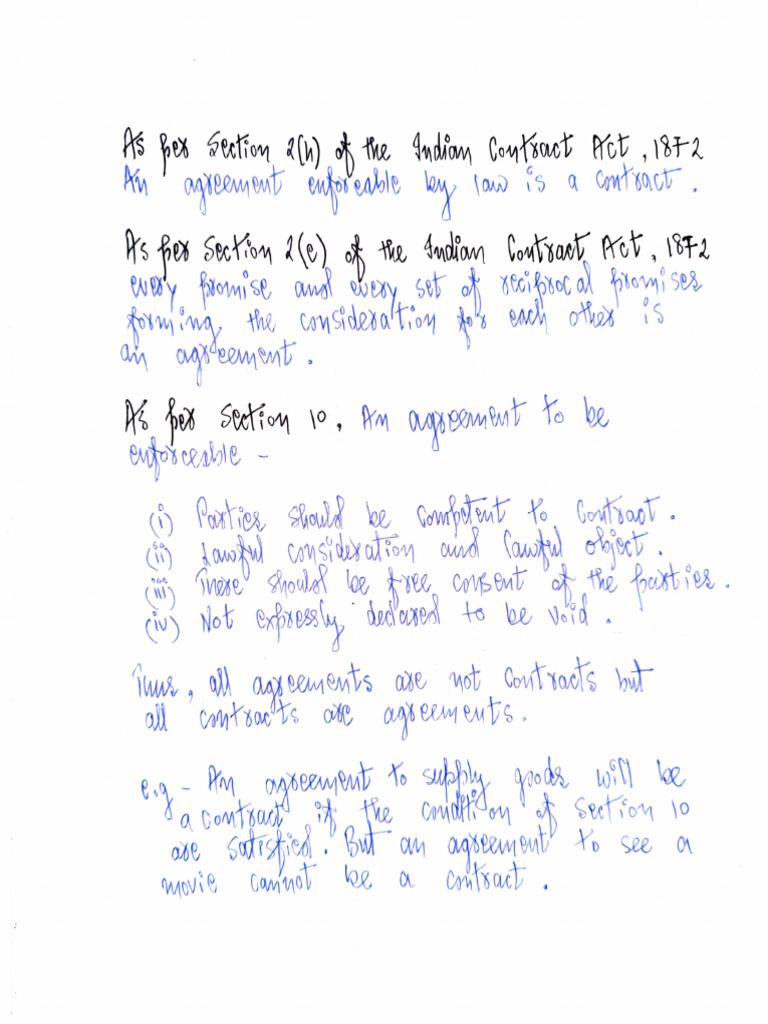 As per Section 2(h) of the Indian Contract Act, 1872
An agreement enforeable by law is a contract.
As per Section 2(e) of the Indian Contract Act, 1872
every promise and every set of reciprocal promises
forming the consideration for each other is
an agreement.
As per Section 10, An agreement to be
enforceable -
(i) Parties should be competent to contract.
(ii) Lawful consideration and lawful object.
(iii) There should be free consent of the parties.
(iv) Not expressly declared to be void.
Thus, all agreements are not contracts but
all contracts are agreements.
e.g - An agreement to supply goods will be
a contract if the condition of Section 10
are satisfied. But an agreement to see a
movie cannot be a contract.